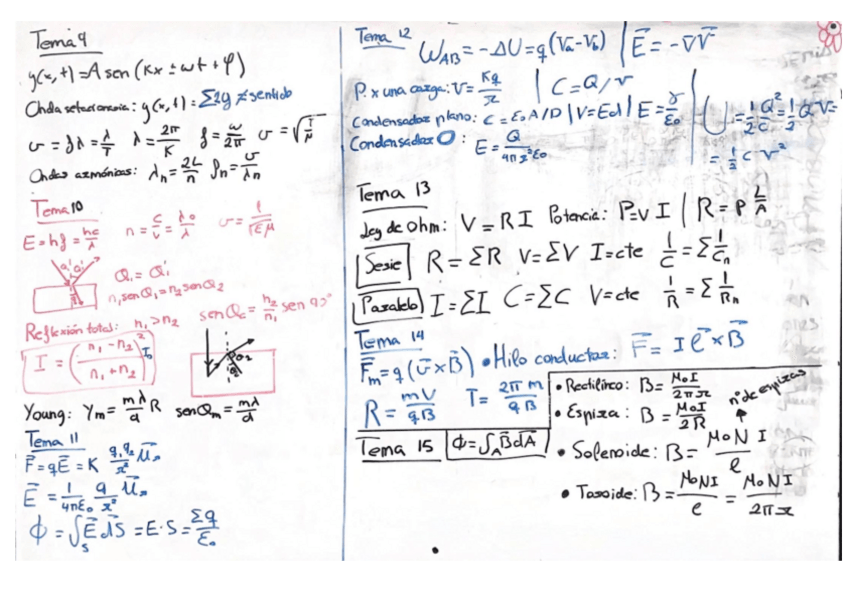 Tema 9
y(x,t) = A sen (Kx ± ωt + φ)
Onda estacionaria: y(x,t) = Σ2y ≠ sentido
v = fλ = λ/T   λ = 2π/K   f = ω/2π   v = √(T/μ)
Ondas armónicas: λn = 2L/n   fn = v/λn
Tema 10
E = hf = hc/λ   n = c/v = λo/λ   v = 1/√(εμ)
Q₁ = Q₁'
n₁senQ₁ = n₂senQ₂
Reflexión total: n₁ > n₂   senQc = n₂/n₁ sen 90°
I = ((n₁ - n₂)/(n₁ + n₂))² I₀
Young: Ym = mλ/d R   senQm = mλ/d
Tema 11
F⃗ = qE⃗ = K q₁q₂/r² u⃗r
E⃗ = 1/4πε₀ q/r² u⃗r
ϕ = ∫s E⃗ dS⃗ = E·S = Σq/ε₀
Tema 12   WAB = -ΔU = q(Va - Vb) | E⃗ = -∇V⃗
P. x una carga: V = Kq/r | C = Q/V
Condensador plano: C = ε₀A/D | V = Ed | E = γ/ε₀ | U = 1/2 Q²/C = 1/2 QV =
Condensador O: E = Q/4πr²ε₀   = 1/2 C V²
Tema 13
Ley de Ohm: V = R I   Potencia: P = V I | R = ρ L/A
Serie   R = ΣR   V = ΣV   I = cte   1/C = Σ 1/Cn
Paralelo   I = ΣI   C = ΣC   V = cte   1/R = Σ 1/Rn
Tema 14
F⃗m = q(v⃗ × B⃗)   • Hilo conductor: F⃗ = I ℓ⃗ × B⃗
R = mV/qB   T = 2π m/qB
• Rectilíneo: B = μ₀I/2πr
• Espira: B = μ₀I/2R
nº de espiras
Tema 15   ϕ = ∫A B⃗ dA⃗
• Solenoide: B = μ₀N I/ℓ
• Toroide: B = μ₀NI/ℓ = μ₀NI/2πr